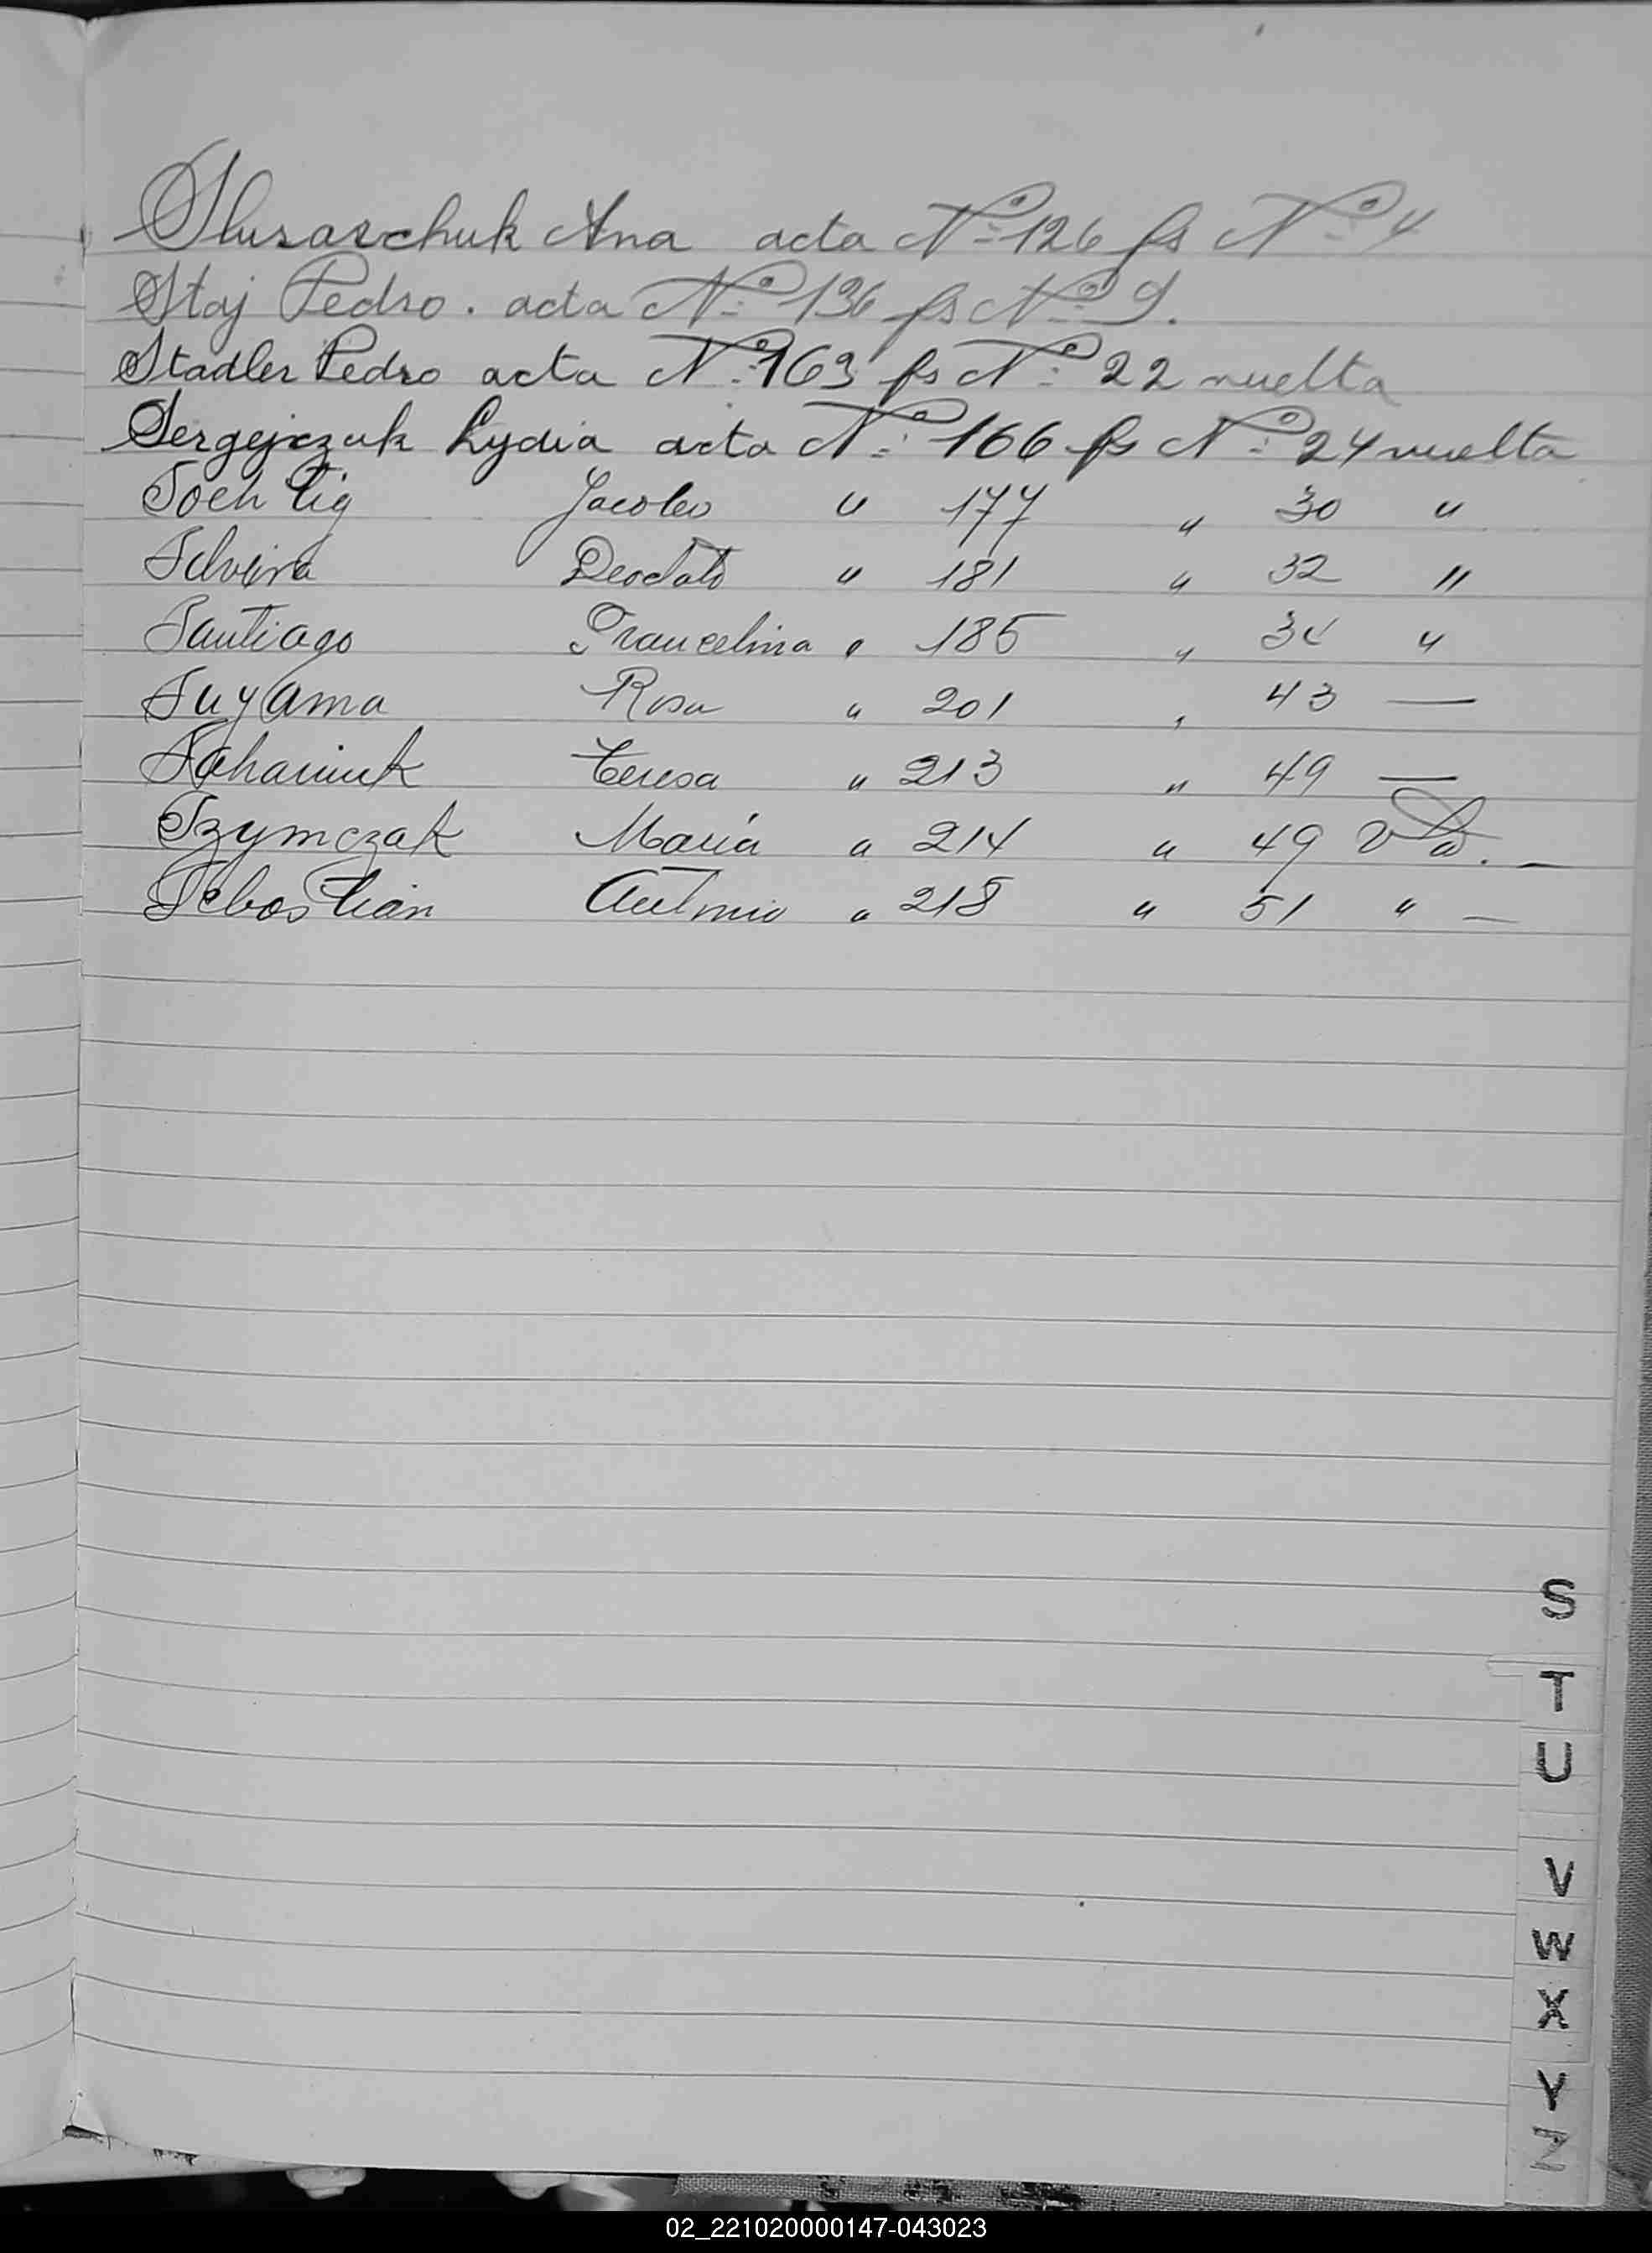 Slusarchuk Ana acta Nº 126 fs Nº 4
Staj Pedro. acta Nº 136 fs Nº 9.
Stadler Pedro acta Nº 163 fs Nº 22 vuelta
Sergejczuk Lydia acta Nº 166 fs Nº 24 vuelta
Soehlig Jacobo " 177 " 30 "
Silveira Deodato " 181 " 32 "
Santiago Francelina " 185 " 34 "
Suyama Rosa " 201 " 43 —
Sahaniuk Teresa " 213 " 49 —
Szymczak María " 214 " 49 vta. —
Sebastian Antonio " 218 " 51 " —
S
T
U
V
W
X
Y
Z
02_221020000147-043023